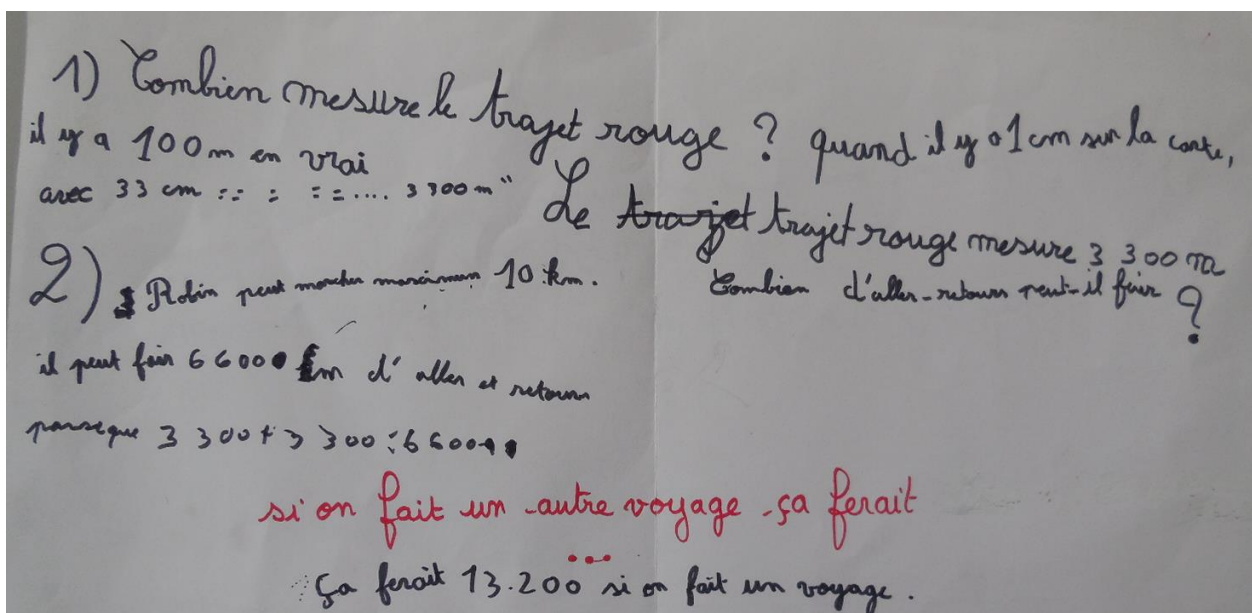 1) Combien mesure le trajet rouge ? quand il y a 1 cm sur la carte,
il y a 100 m en vrai
avec 33 cm :: : :: .... 3 300 m "
Le trajet trajet rouge mesure 3 300 m
2) Robin peut marcher maximum 10 km. Combien d'aller-retours peut-il fair ?
il peut fair 6 600 m d'aller et retours
parseque 3 300 + 3 300 : 6 600
si on fait un autre voyage ça ferait
...
Ça ferait 13.200 si on fait un voyage.